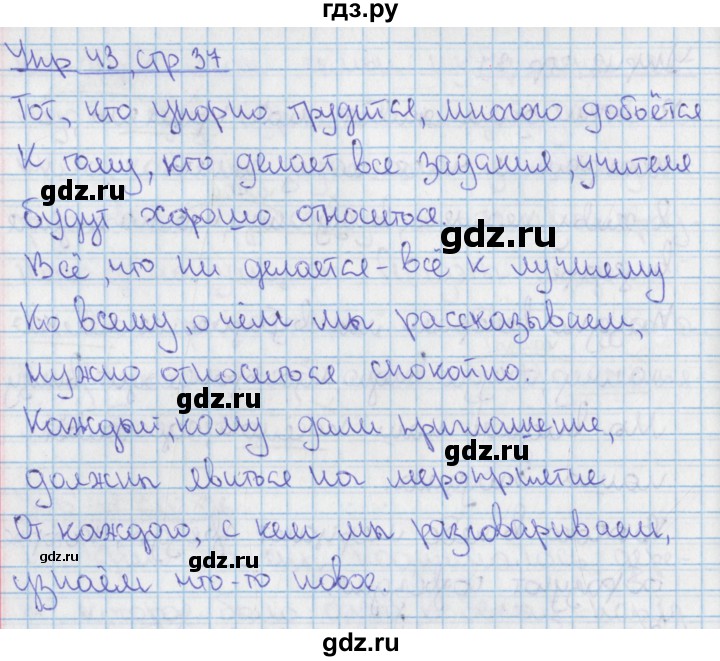 гдз.ру
Упр 43, стр 37
Тот, кто упорно трудится, многого добьётся
К тому, кто делает все задания, учителя
gdz.ru
будут хорошо относиться.
gdz.ru
Всё, что ни делается - всё к лучшему
Ко всему, о чём мы рассказываем,
нужно относиться спокойно.
gdz.ru
Каждый, кому дали приглашение,
gdz.ru
должны явиться на мероприятие
От каждого, с кем мы разговариваем,
gdz.ru
gdz.ru
узнаём что-то новое.
gdz.ru